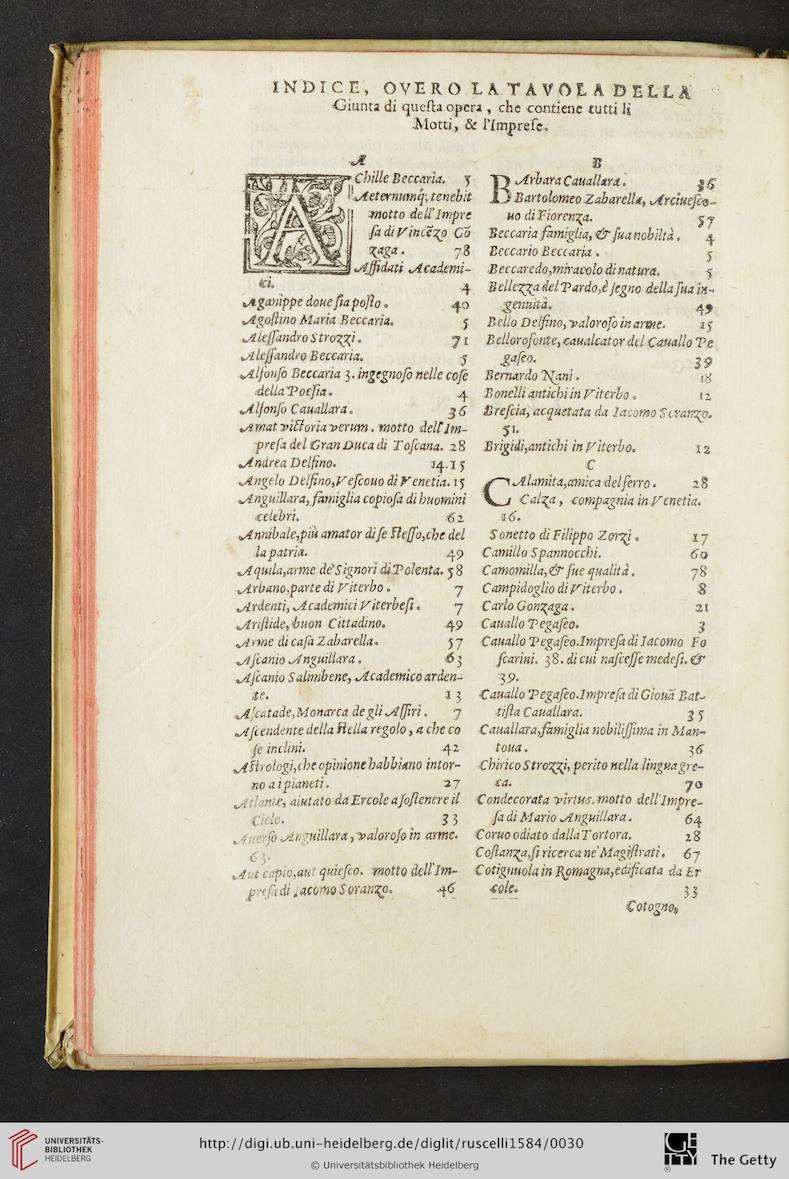 INDICE, OVERO LA TAVOLA DELLA
Giunta di queſta opera, che contiene tutti li
Motti, & l'Impreſe.
A
AChille Beccaria. 3
Aeternumq; tenebit
motto dell'Impre
ſa di Vincẽzo Gõ
zaga. 78
Affidati Academi-
ci. 4
Aganippe doue ſia poſto. 40
Agoſtino Maria Beccaria. 5
Aleſſandro Strozzi. 71
Aleſſandro Beccaria. 5
Alfonſo Beccaria 3. ingegnoſo nelle coſe
della Poeſia. 4
Alfonſo Cauallara. 36
Amat victoria verum. motto dell'Im-
preſa del Gran Duca di Toſcana. 28
Andrea Delfino. 14.15
Angelo Delfino, Veſcouo di Venetia. 15
Anguillara, famiglia copioſa di huomini
celebri. 62
Annibale, più amator di ſe ſteſſo, che del
la patria. 49
Aquila, arme de' Signori di Polenta. 58
Arbano, parte di Viterbo. 7
Ardenti, Academici Viterbeſi. 7
Ariſtide, buon Cittadino. 49
Arme di caſa Zabarella. 57
Aſcanio Anguillara. 63
Aſcanio Salimbene, Academico arden-
te. 13
Aſcatade, Monarca de gli Aſſiri. 7
Aſcendente della ſtella regolo, a che co
ſe inclini. 42
Aſtrologi, che opinione habbiano intor-
no a i pianeti. 27
Atlante, aiutato da Ercole a ſoſtenere il
Cielo. 33
Auerſo Anguillara, valoroſo in arme.
63.
Aut capio, aut quieſco. motto dell'Im-
preſa di Iacomo Soranzo. 46
B
BArbara Cauallara. 36
Bartolomeo Zabarella, Arciueſco-
uo di Fiorenza. 57
Beccaria famiglia, & ſua nobiltà. 4
Beccario Beccaria. 5
Beccaredo, miracolo di natura. 5
Bellezza del Pardo, è ſegno della ſua in-
gennità. 49
Bello Delfino, valoroſo in arme. 15
Belloroſonte, caualcator del Cauallo Pe
gaſeo. 39
Bernardo Nani. 18
Bonelli antichi in Viterbo. 12
Breſcia, acquetata da Iacomo Soranzo.
51.
Brigidi, antichi in Viterbo. 12
C
CAlamita, amica del ferro. 28
Calza, compagnia in Venetia.
16.
Sonetto di Filippo Zorzi. 17
Camillo Spannocchi. 60
Camomilla, & ſue qualità. 78
Campidoglio di Viterbo. 8
Carlo Gonzaga. 21
Cauallo Pegaſeo. 3
Cauallo Pegaſeo. Impreſa di Iacomo Fo
ſcarini. 38. di cui naſceſſe medeſi. &
39.
Cauallo Pegaſeo. Impreſa di Giouã Bat-
tiſta Cauallara. 35
Cauallara, famiglia nobiliſſima in Man-
toua. 36
Chirico Strozzi, perito nella lingua gre-
ca. 70
Condecorata virtus. motto dell'Impre-
ſa di Mario Anguillara. 64
Coruo odiato dalla Tortora. 28
Coſtanza, ſi ricerca ne' Magiſtrati. 67
Cotignuola in Romagna, edificata da Er
cole. 33
Cotogno,
UNIVERSITÄTS-
BIBLIOTHEK
HEIDELBERG
http://digi.ub.uni-heidelberg.de/diglit/ruscelli1584/0030
© Universitätsbibliothek Heidelberg
GETTY
®
The Getty